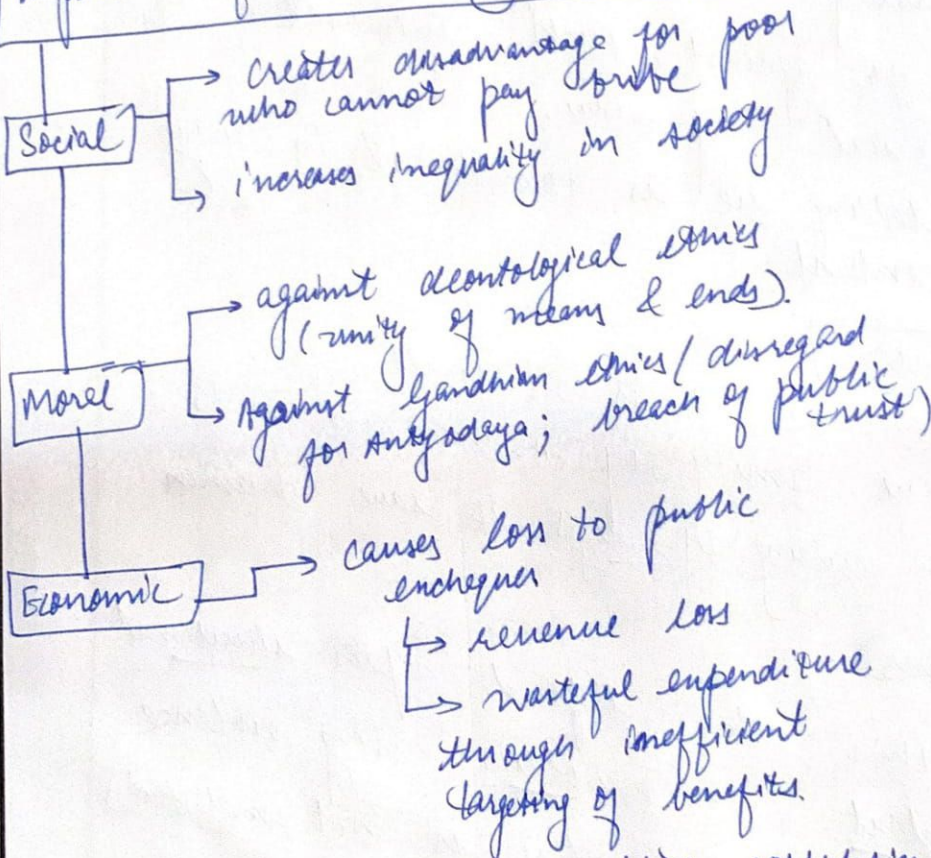 Social
creates disadvantage for poor
who cannot pay bribe
increases inequality in society
Moral
against deontological ethics
(unity of means & ends).
Against Gandhian ethics (disregard
for Antyodaya; breach of public
trust)
Economic
causes loss to public
exchequer
revenue loss
wasteful expenditure
through inefficient
targeting of benefits.